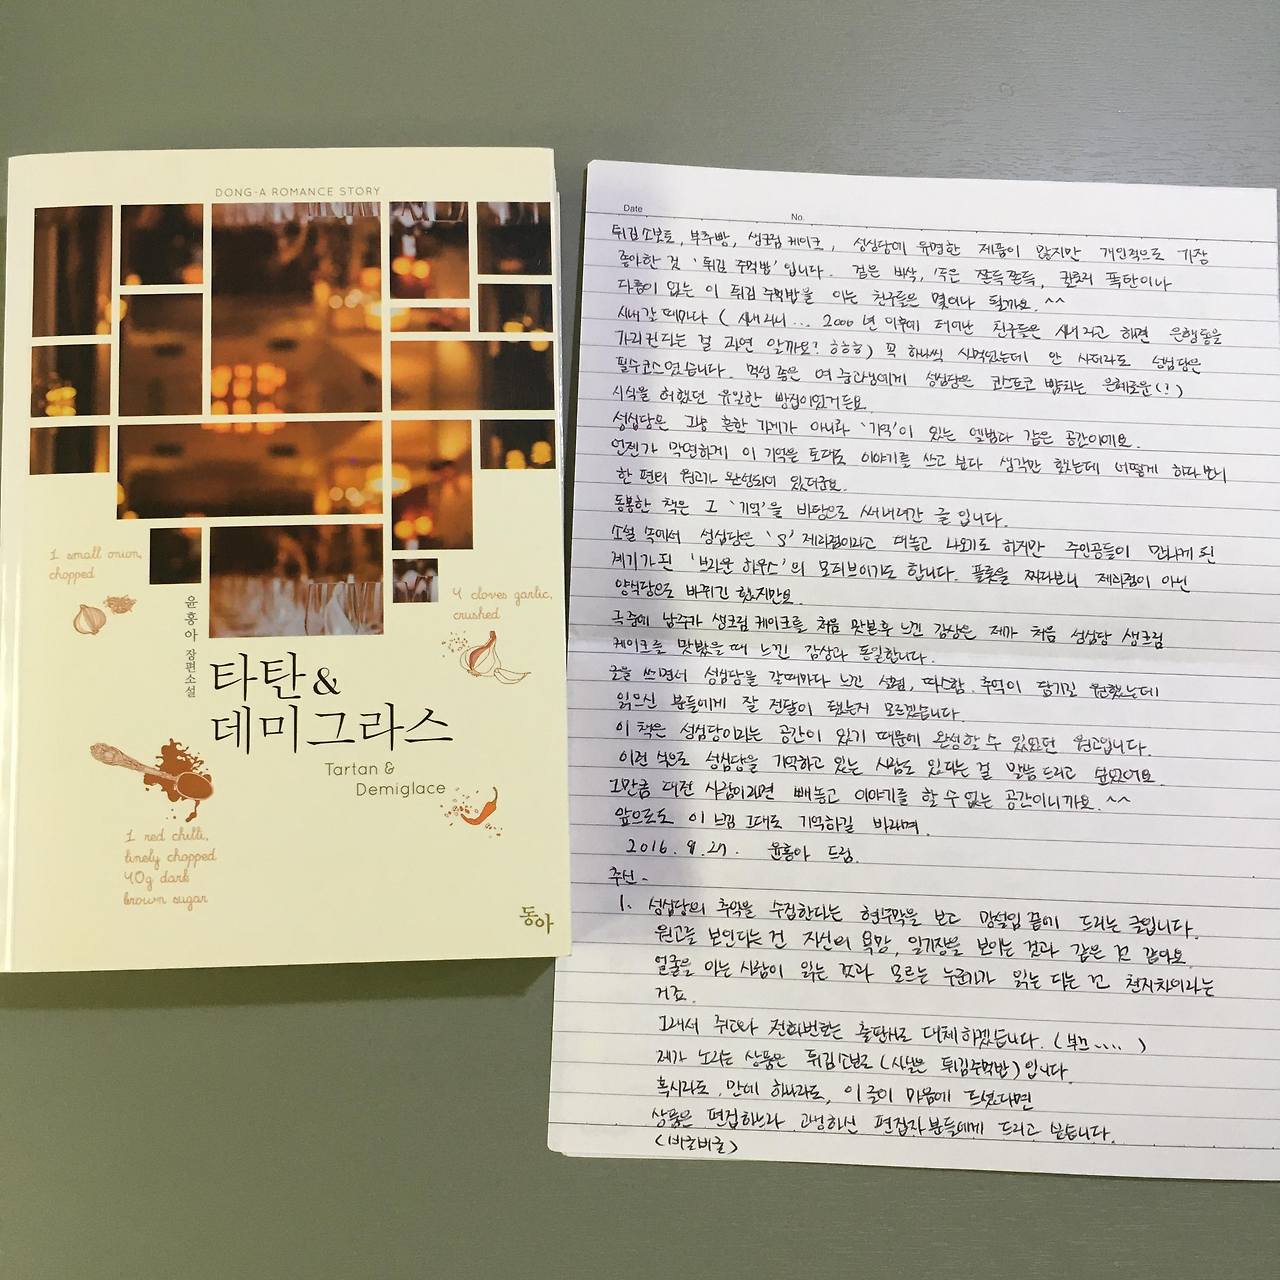 DONG-A ROMANCE STORY
1 small onion,
chopped
4 cloves garlic,
crushed
윤홍아 장편소설
타탄 &
데미그라스
Tartan &
Demiglace
1 red chilli,
finely chopped
40g dark
brown sugar
동아
Date
No.
튀김소보로, 부추빵, 생크림 케이크, 성심당에 유명한 제품이 많지만 개인적으로 가장
좋아한 것 '튀김 주먹밥'입니다. 겉은 바삭, 속은 쫀득쫀득, 칼로리 폭탄이나
다름이 없는 이 튀김 주먹밥을 아는 친구들은 몇이나 될까요. ^^
시내 갈 때마다 (시내라니... 2000년 이후에 태어난 친구들은 시내라고 하면 은행동을
가리킨다는 걸 과연 알까요? ㅎㅎㅎ) 꼭 하나씩 사먹었는데 안 사더라도 성심당은
필수코스였습니다. 먹성 좋은 여중고생에게 성심당은 코스트코 뺨치는 은혜로운(!)
시식을 허했던 유일한 빵집이었거든요.
성심당은 그냥 흔한 가게가 아니라 '기억'이 있는 앨범과 같은 공간이에요.
언젠가 막연하게 이 기억을 토대로 이야기를 쓰고 싶다 생각만 했는데 어떻게 하다보니
한 편의 원고가 완성되어 있더군요.
동봉한 책은 그 '기억'을 바탕으로 써내려간 글입니다.
소설 속에서 성심당은 'S'제과점이라고 대놓고 나오기도 하지만 주인공들이 만나게 된
계기가 된 '브라운 하우스'의 모티브이기도 합니다. 플롯을 짜다보니 제과점이 아닌
양식당으로 바뀌긴 했지만요.
극 중에 남주가 생크림 케이크를 처음 맛본 후 느낀 감상은 제가 처음 성심당 생크림
케이크를 맛봤을 때 느낀 감상과 동일합니다.
글을 쓰면서 성심당을 갈 때마다 느낀 설렘, 따스함, 추억이 담기길 원했는데
읽으신 분들에게 잘 전달이 됐는지 모르겠습니다.
이 책은 성심당이라는 공간이 있기 때문에 완성할 수 있었던 원고입니다.
이런 식으로 성심당을 기억하고 있는 사람도 있다는 걸 말씀드리고 싶었어요.
그만큼 대전 사람이라면 빼놓고 이야기를 할 수 없는 공간이니까요. ^^
앞으로도 이 느낌 그대로 기억하길 바라며.
2016. 9. 27. 윤홍아 드림.
추신-
1. 성심당의 추억을 수집한다는 현수막을 보고 망설임 끝에 드리는 글입니다.
원고를 보인다는 건 자신의 욕망, 일기장을 보이는 것과 같은 꼴 같아요.
얼굴을 아는 사람이 읽는 것과 모르는 누군가가 읽는 다는 건 천지차이라는
거죠.
그래서 주소와 전화번호는 출판사로 대체하겠습니다. (부끄....)
제가 노리는 상품은 튀김소보로(사실은 튀김주먹밥)입니다.
혹시라도, 만에 하나라도, 이 글이 마음에 드셨다면
상품은 편집하느라 고생하신 편집자분들에게 드리고 싶습니다.
(바글바글)